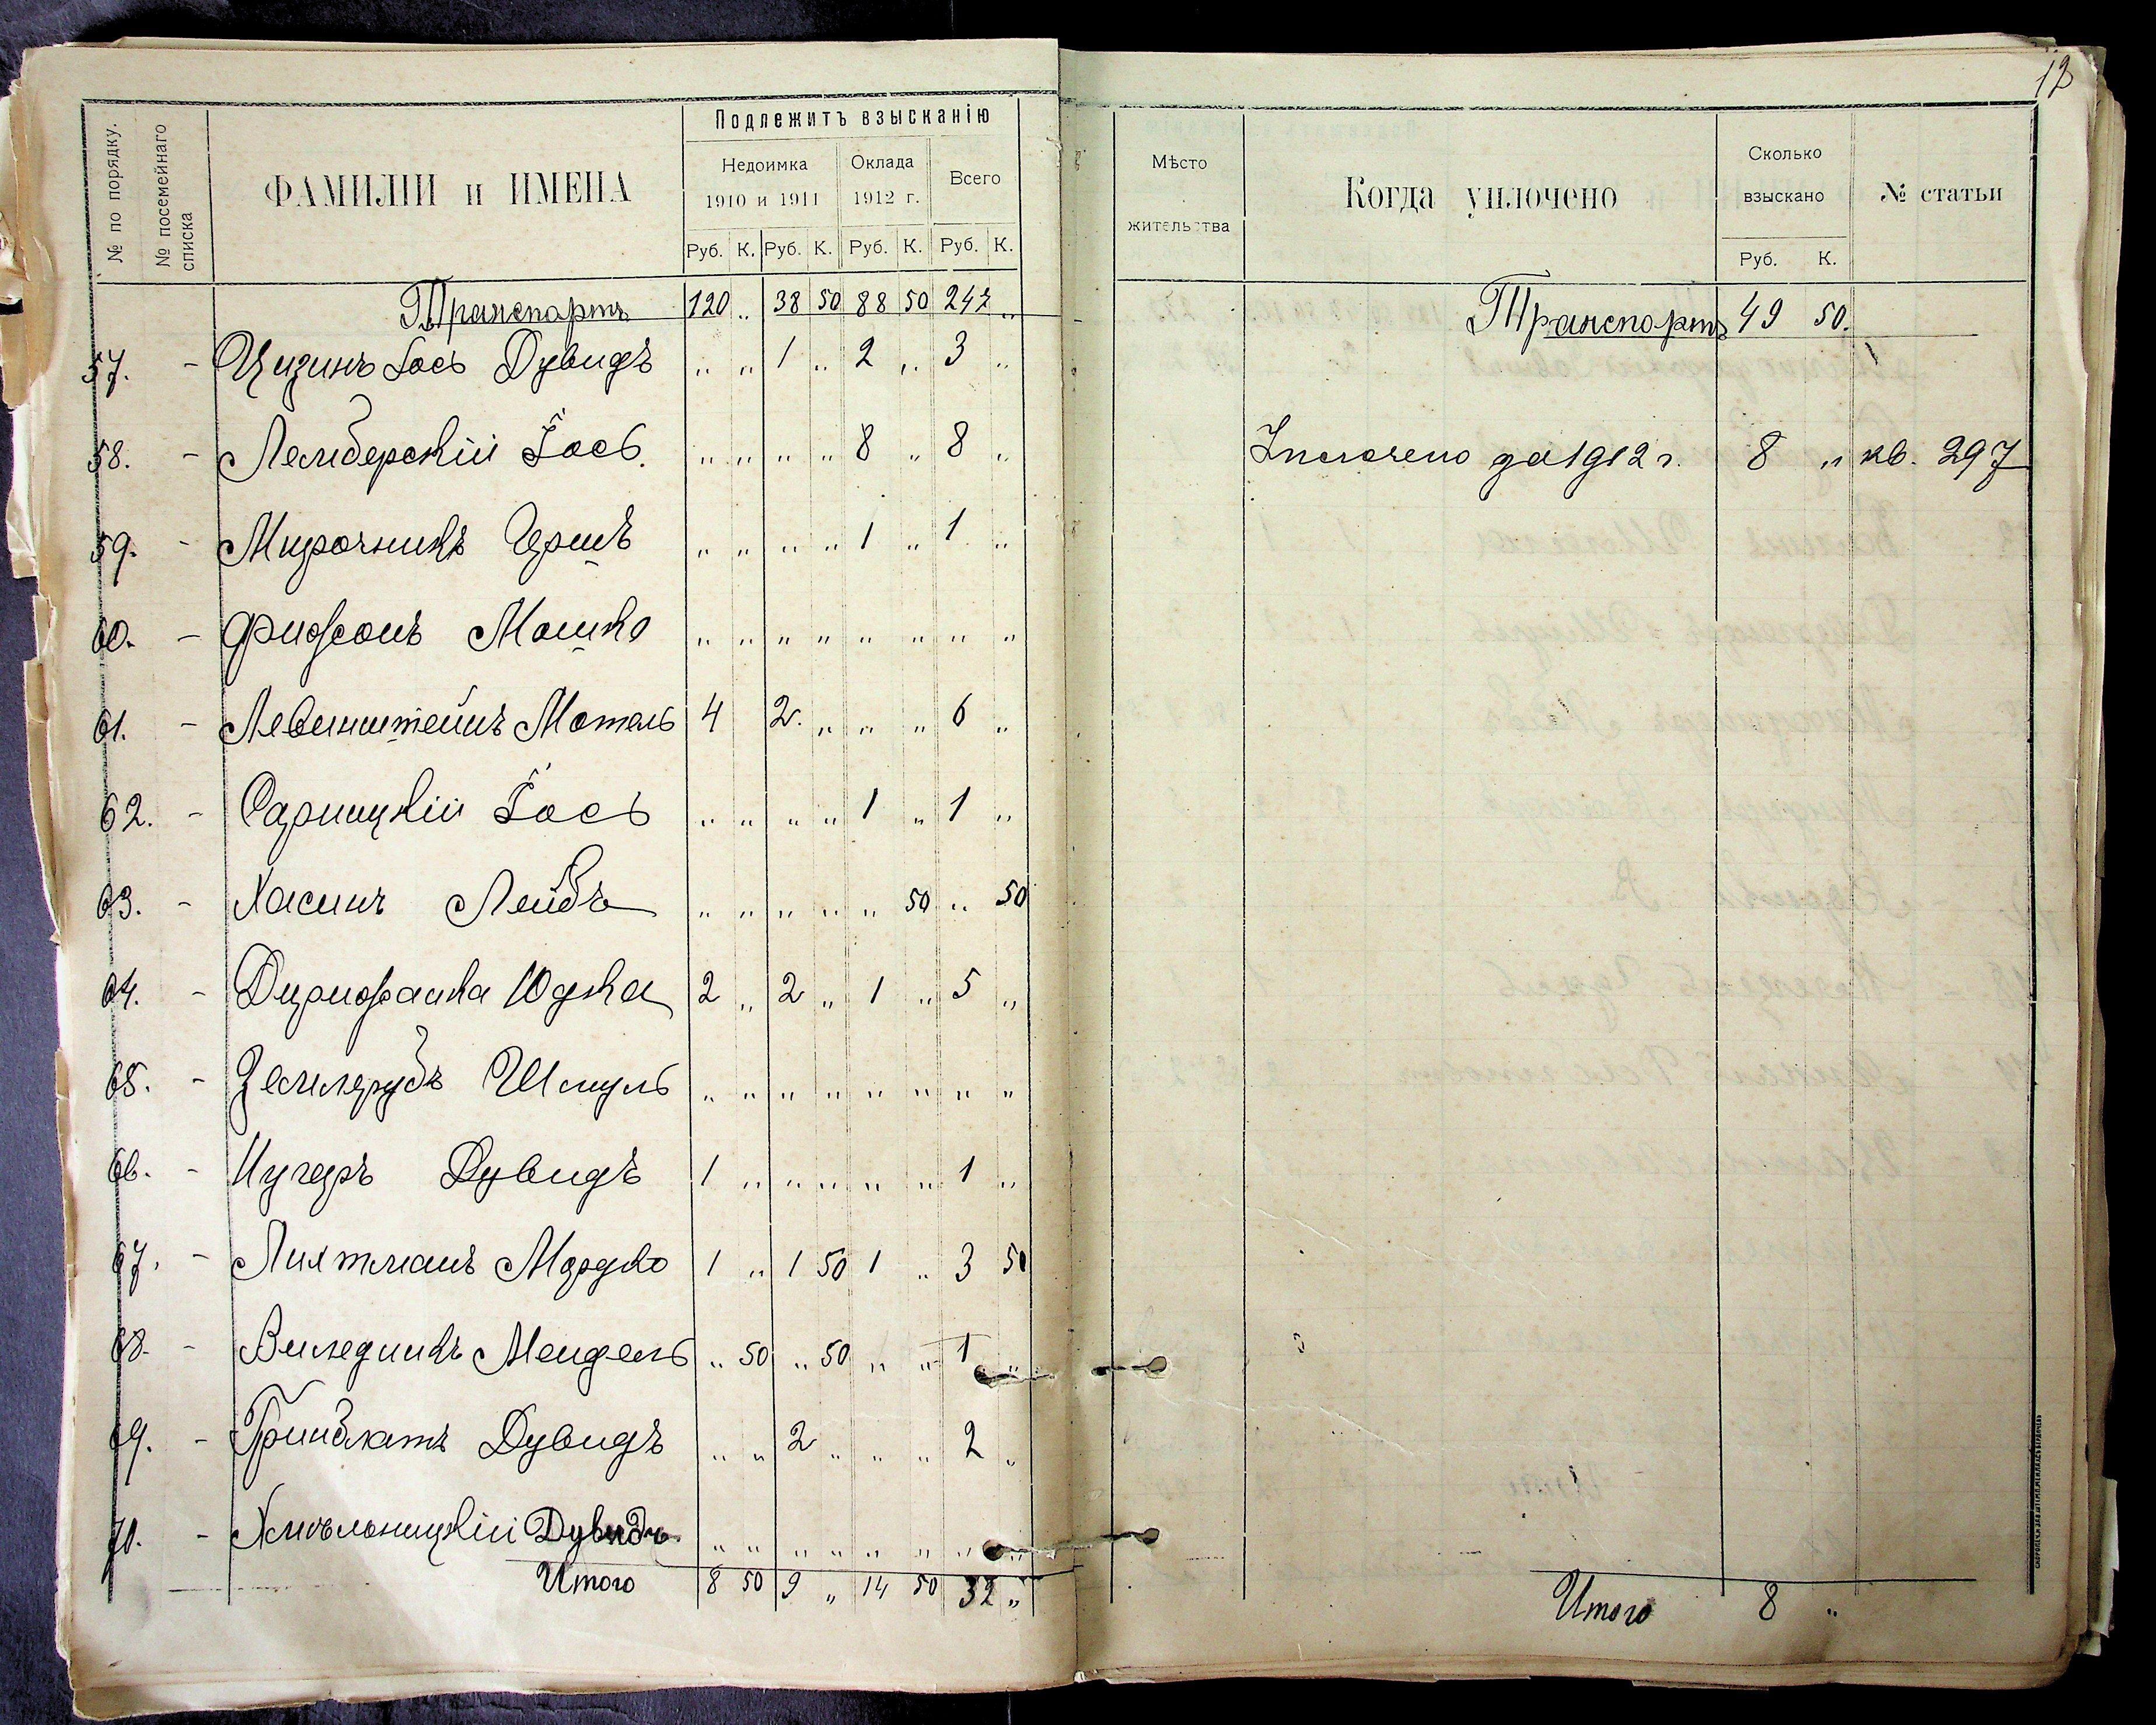 12
№ по порядку.
№ посемейнаго списка
ФАМИЛІИ и ИМЕНА
Подлежитъ взысканію
Недоимка 1910 и 1911
Оклада 1912 г.
Всего
Руб. К. Руб. К. Руб. К. Руб. К.
Транспортъ 120 „ 38 50 88 50 247 „
57. - Цизинъ Іось Дувидъ „ „ 1 „ 2 „ 3 „
58. - Лемберскій Іось. „ „ „ „ 8 „ 8 „
59. - Мирочникъ Гершъ „ „ „ „ 1 „ 1 „
60. - Фридсонъ Мошко „ „ „ „ „ „ „ „
61. - Левинштейнъ Мотель 4 2 „ „ „ 6 „
62. - Сарницкій Іось „ „ „ „ 1 „ 1 „
63. - Хасинъ Лейбъ „ „ „ „ „ 50 „ 50
64. - Юдка 2 „ 2 „ 1 „ 5 „
65. - Шмуль „ „ „ „ „ „ „ „
66. - Дувидъ 1 „ „ „ „ „ 1 „
67. - Лихтманъ Мордко 1 „ 1 50 1 „ 3 50
68. - Виледникъ Мендель „ 50 „ 50 „ „ 1 „
69. - Гринблатъ Дувидъ „ „ 2 „ „ „ 2 „
70. - Хмельницкій Дувидъ „ „ „ „ „ „ „ „
Итого 8 50 9 „ 14 50 32 „
Мѣсто жительства
Когда уплочено
Сколько взыскано
Руб. К.
№ статьи
Транспортъ 49 50.
Уплочено за 1912 г. 8 „ кв. 297
Итого 8 „